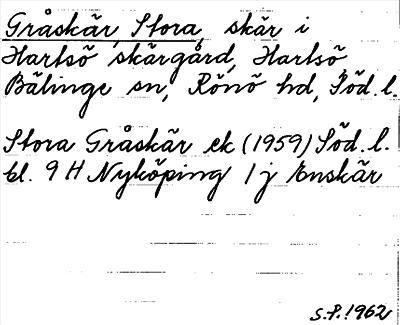 Gråskär, Stora, skär i
Hartsö skärgård, Hartsö
Bälinge sn, Rönö hd, Söd. l.
Stora Gråskär ek (1959) Söd. l.
bl. 9 H Nyköping 1 j Enskär
S.P. 1962